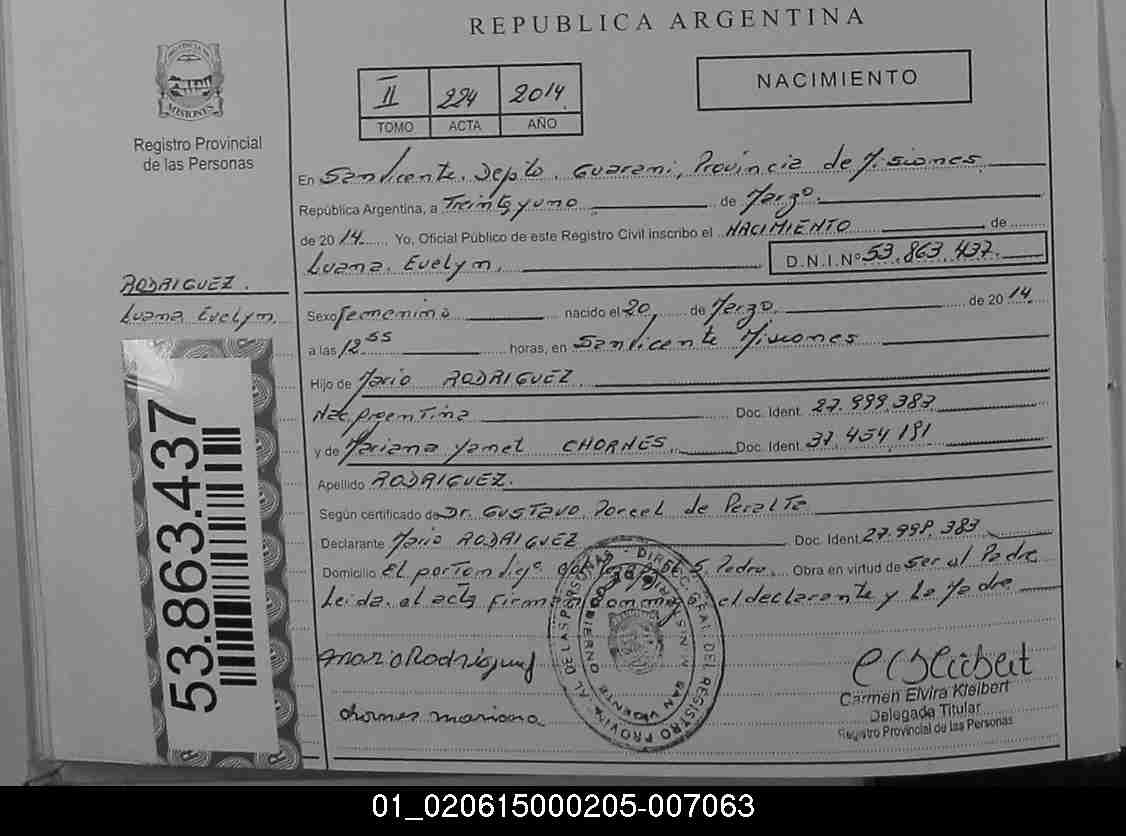 REPUBLICA ARGENTINA
PROVINCIA DE MISIONES
Registro Provincial
de las Personas
II 224 2014
TOMO ACTA AÑO
NACIMIENTO
En San Vicente, Depto. Guarani, Provincia de Misiones
República Argentina, a Treinta y uno de Marzo
de 2014 Yo, Oficial Público de este Registro Civil inscribo el NACIMIENTO de
Luana Evelyn. D.N.I.Nº 53.863.437.
RODRIGUEZ.
Luana Evelyn.
Sexo femenino nacido el 20 de Marzo de 2014
a las 12 55 horas, en San Vicente Misiones
Hijo de Mario RODRIGUEZ
Nac Argentina Doc. Ident.
y de Mariana Yanet CHORNES Doc. Ident. 37.454.191
Apellido RODRIGUEZ.
Según certificado de Dr. GUSTAVO Porcel de Peralta
Declarante Mario RODRIGUEZ Doc. Ident. 27.998.383
Domicilio El porton S. Pedro. Obra en virtud de ser el Padre
Leida el acta firman el declarante y La Madre
Mario Rodriguez
chornes mariana
Carmen Elvira Kleibert
Delegada Titular
Registro Provincial de las Personas
53.863.437
01_020615000205-007063